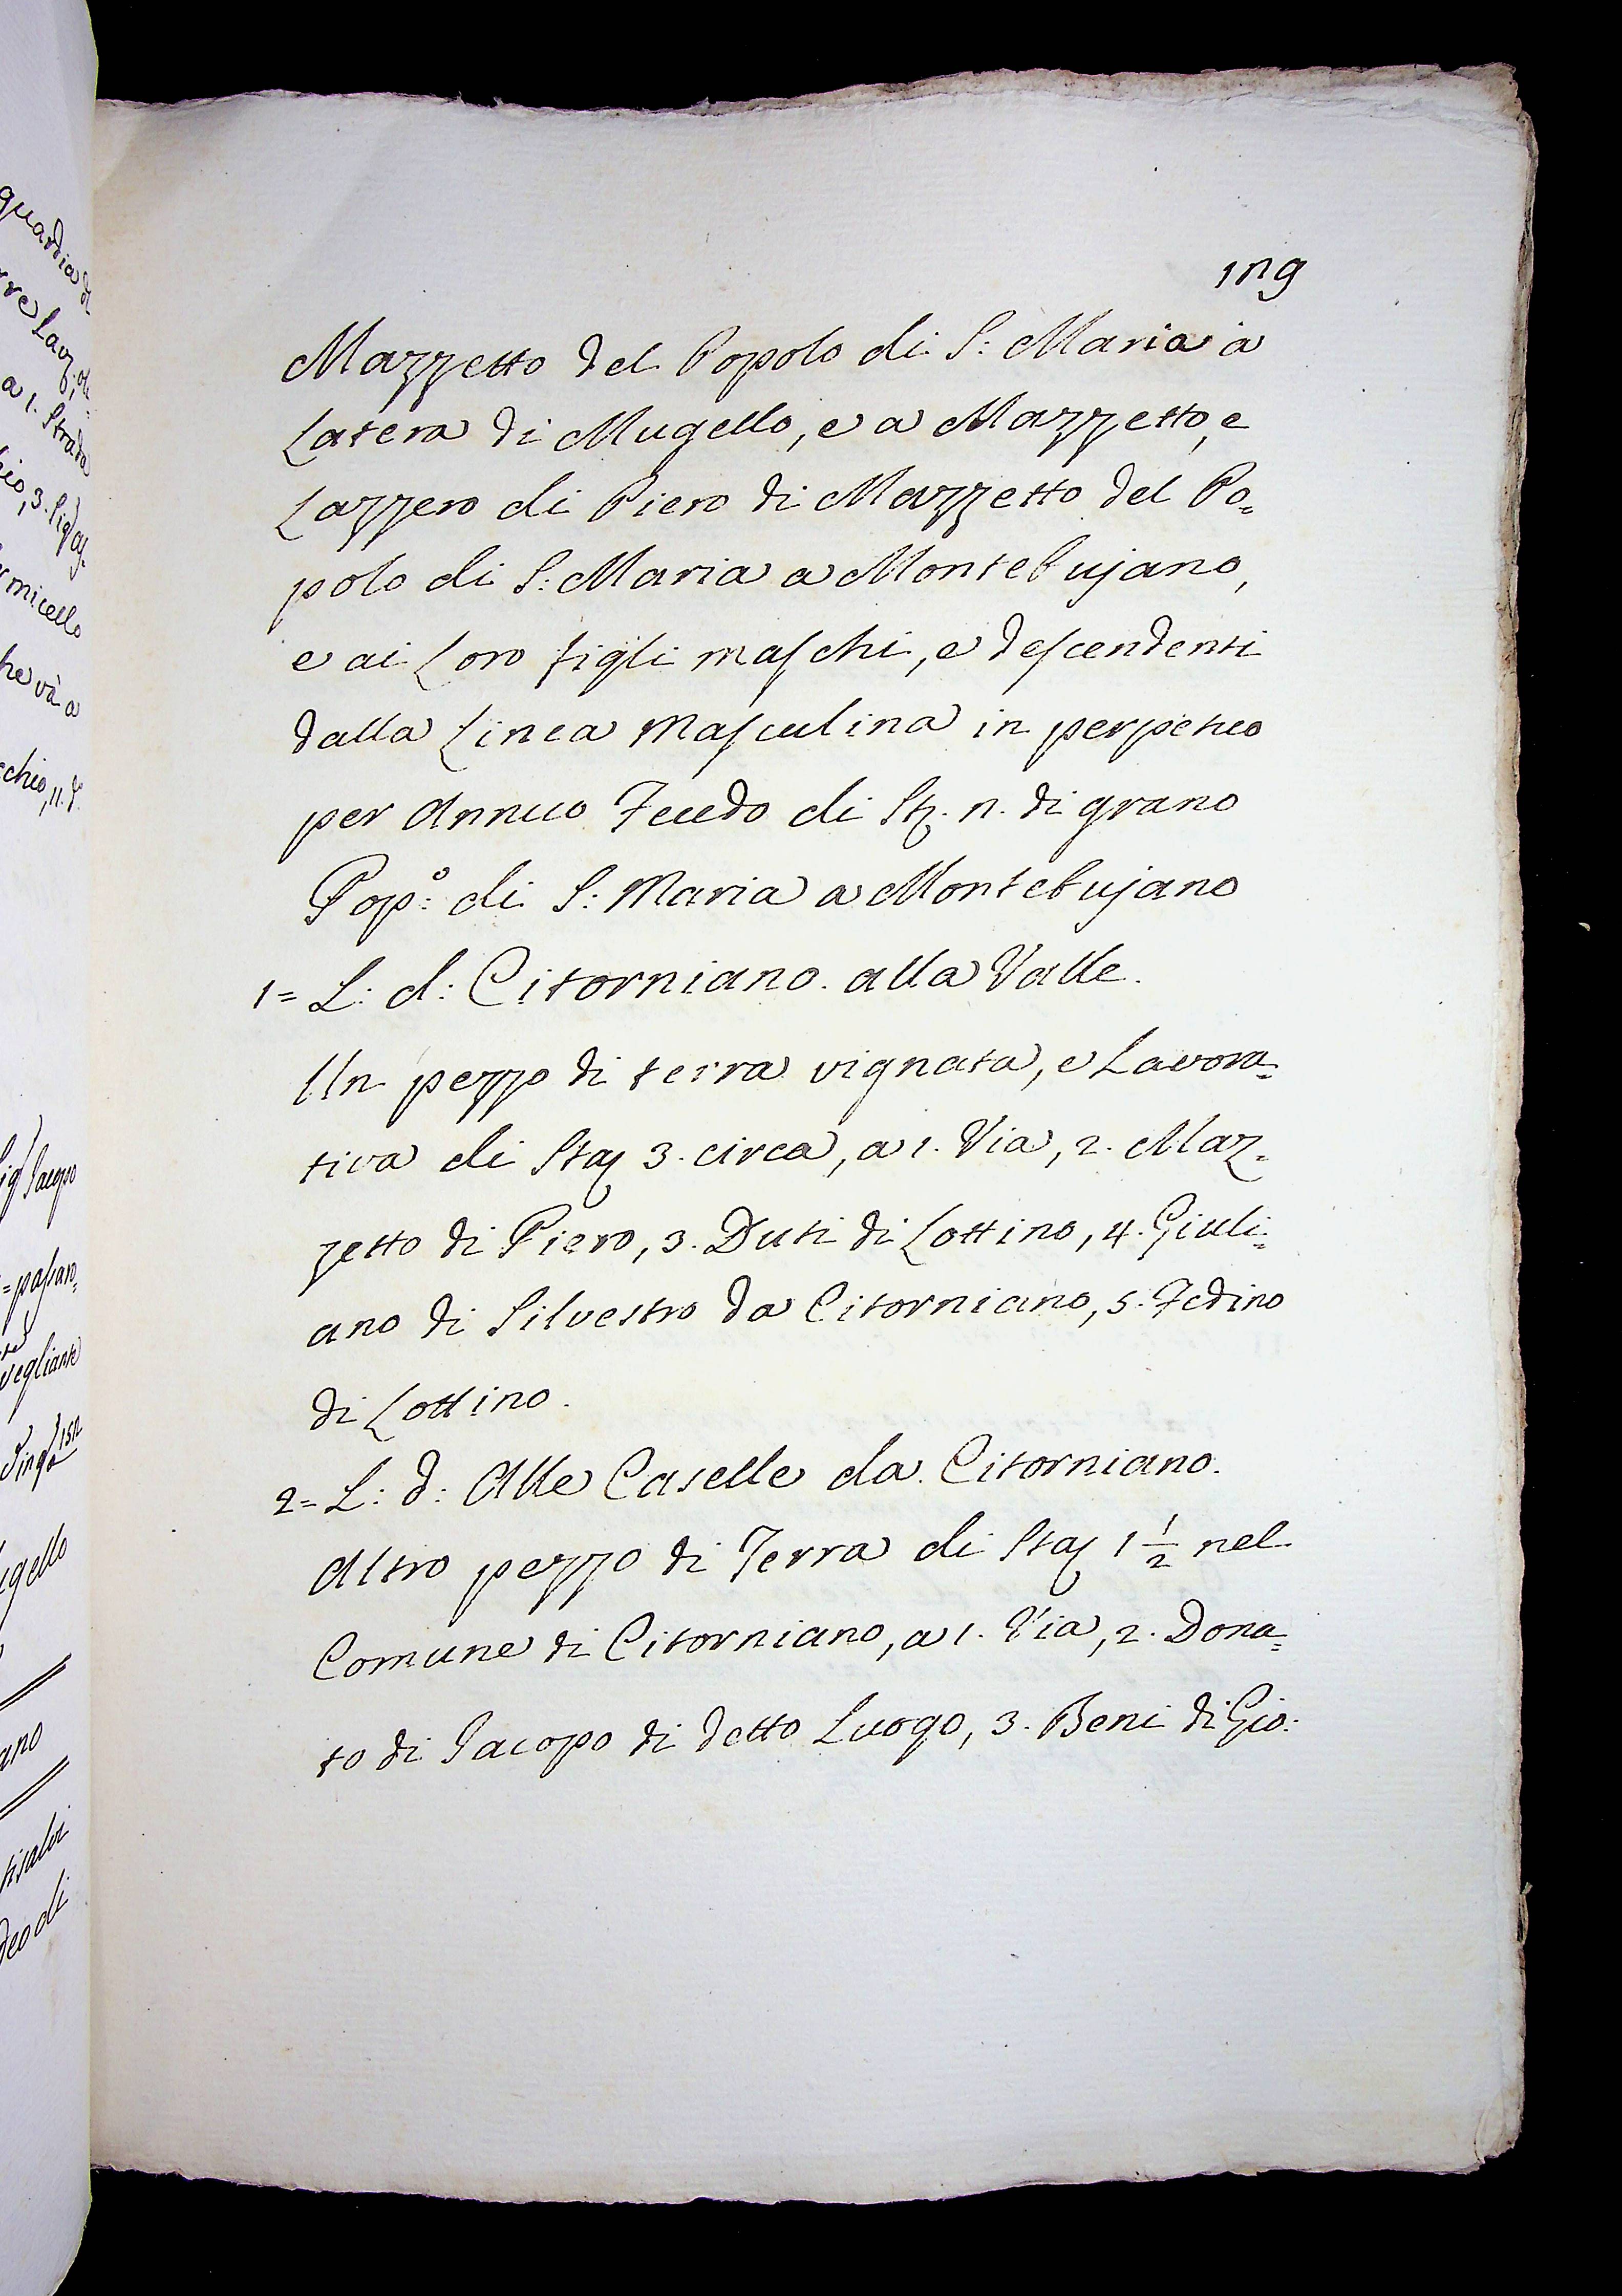 179
Mazzetto del Popolo di S: Maria a
Latera di Mugello, e a Mazzetto, e
Lazzero di Piero di Mazzetto del Po=
polo di S: Maria a Montebujano,
e ai Loro figli maschi, e descendenti
dalla Linea Masculina in perpetuo
per Annuo Feudo di St. 7. di grano
Pop:º di S: Maria a Montebujano
1= L: d: Citorniano alla Valle.
Un pezzo di terra vignata, e Lavora=
tiva di Staj 3. circa, a 1. Via, 2. Maz=
zetto di Piero, 3. Duti di Lottino, 4. Giuli=
ano di Silvestro da Citorniano, 5. Fedino
di Lottino.
2= L: d: Alle Caselle da Citorniano.
Altro pezzo di Terra di Staj 1 1/2 nel
Comune di Citorniano, a 1. Via, 2. Dona=
to di Jacopo di detto Luogo, 3. Beni di Gio: